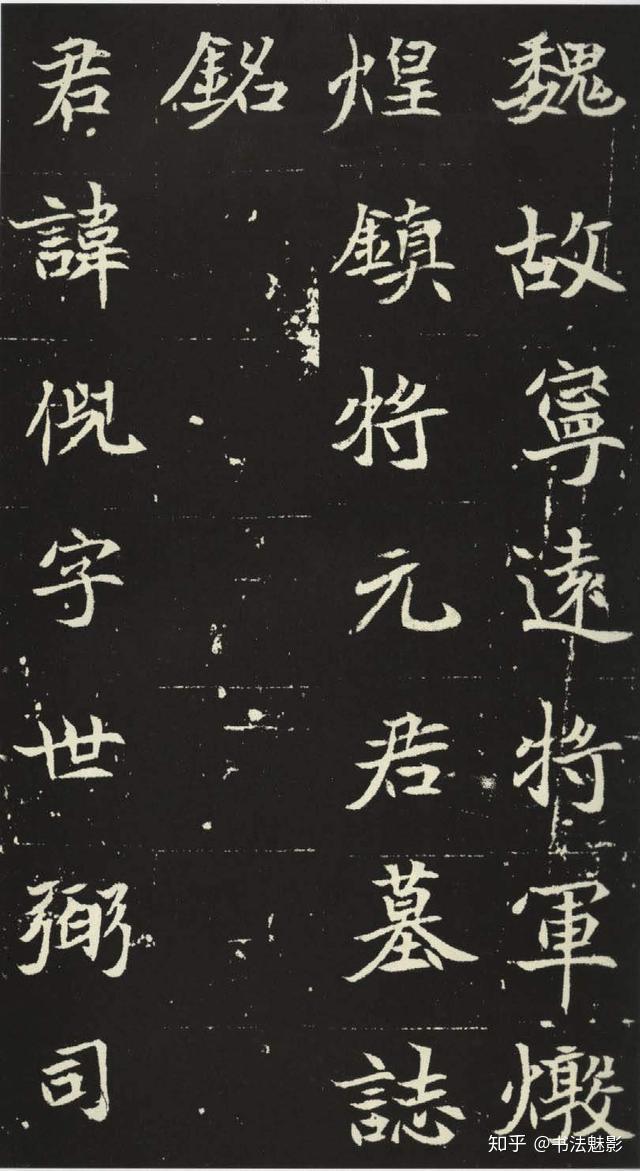 魏故寧遠將軍燉
煌鎮將元君墓誌
銘
君諱倪字世弼司
知乎 @书法魅影